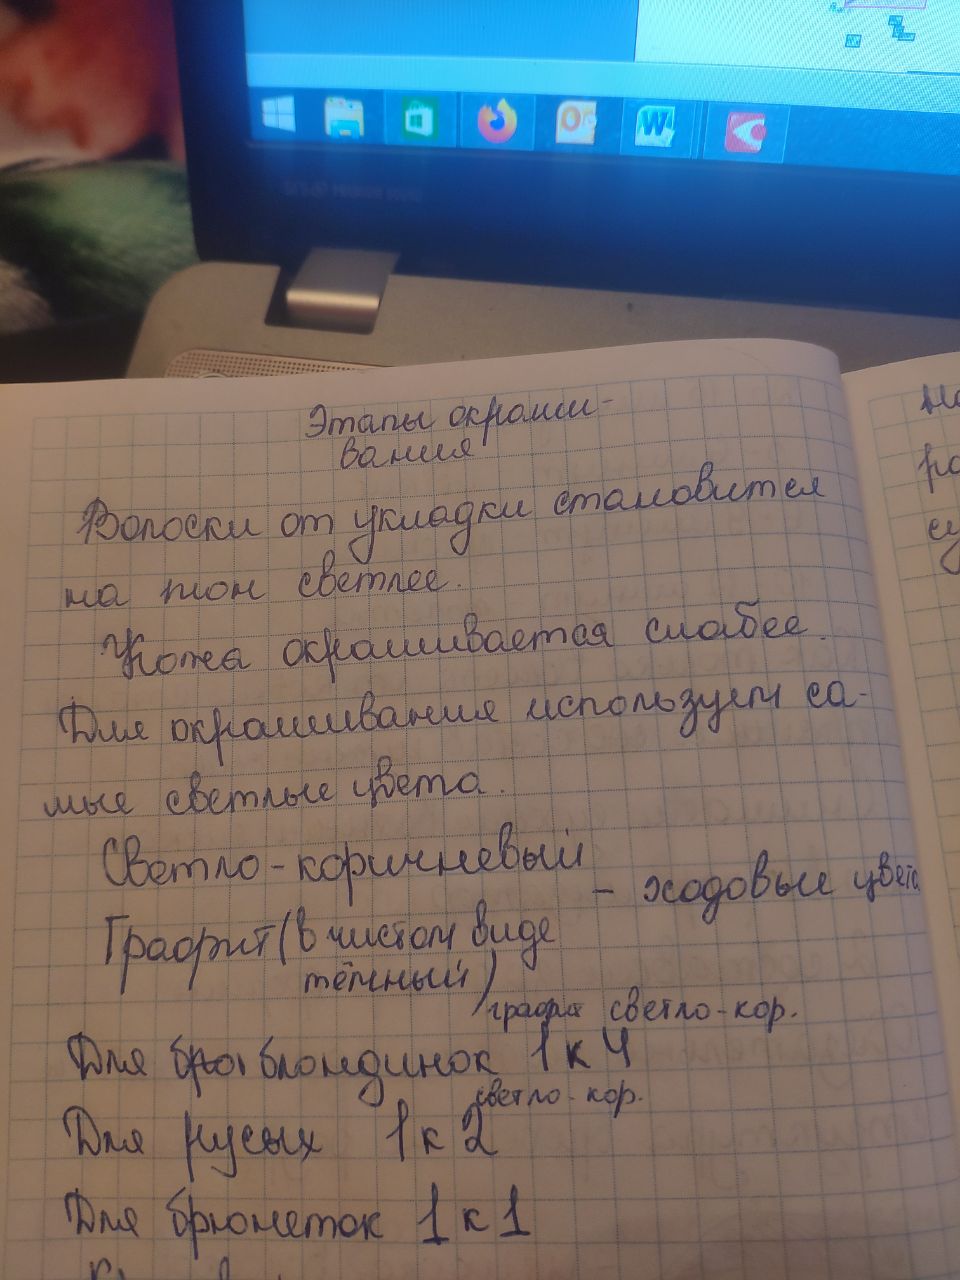 Этапы окраши-
вания
Волоски от укладки становится
на тон светлее.
Кожа окрашивается слабее.
Для окрашивания используем са-
мые светлые цвета.
Светло-коричневый
- ходовые цвета
Графит (в чистом виде
тёмный)
граф светло-кор.
Для блондинок 1 к 4
светло-кор.
Для русых 1 к 2
Для брюнеток 1 к 1